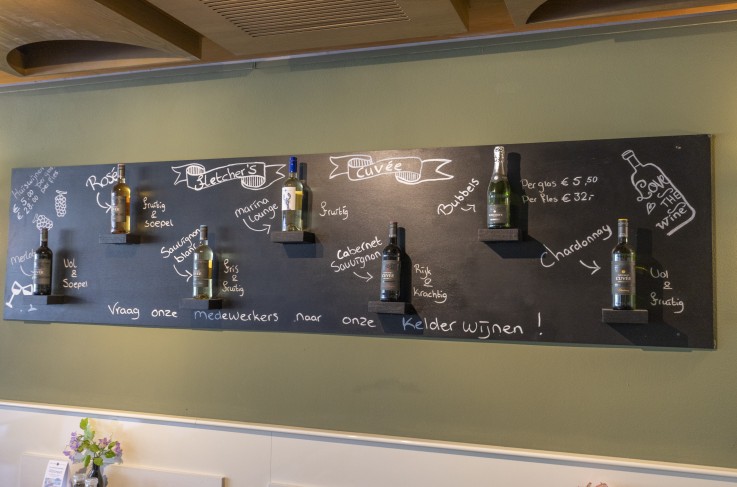 Huiswijnen
€ 5,00 per glas
€ 28,00 per fles
Rosé
Fruitig
&
Soepel
Fletcher's
Cuvée
Marina
Lounge
Fruitig
Bubbels
Per glas € 5,50
Per Fles € 32,-
LOVE
THE
wine
Merlot
Vol
&
Soepel
Sauvignon
blanc
Fris
&
fruitig
Cabernet
Sauvignon
Rijk
&
Krachtig
Chardonnay
Vol
&
fruitig
CUVÉE
Vraag onze medewerkers naar onze Kelder wijnen !